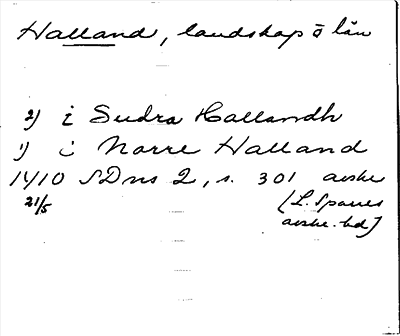 Halland, landskap o län
2) i Sudra Hallandh
1) i Norre Halland
1410 SDns 2, s. 301 avskr
21/5 [L. Sparres
avskr. bd]